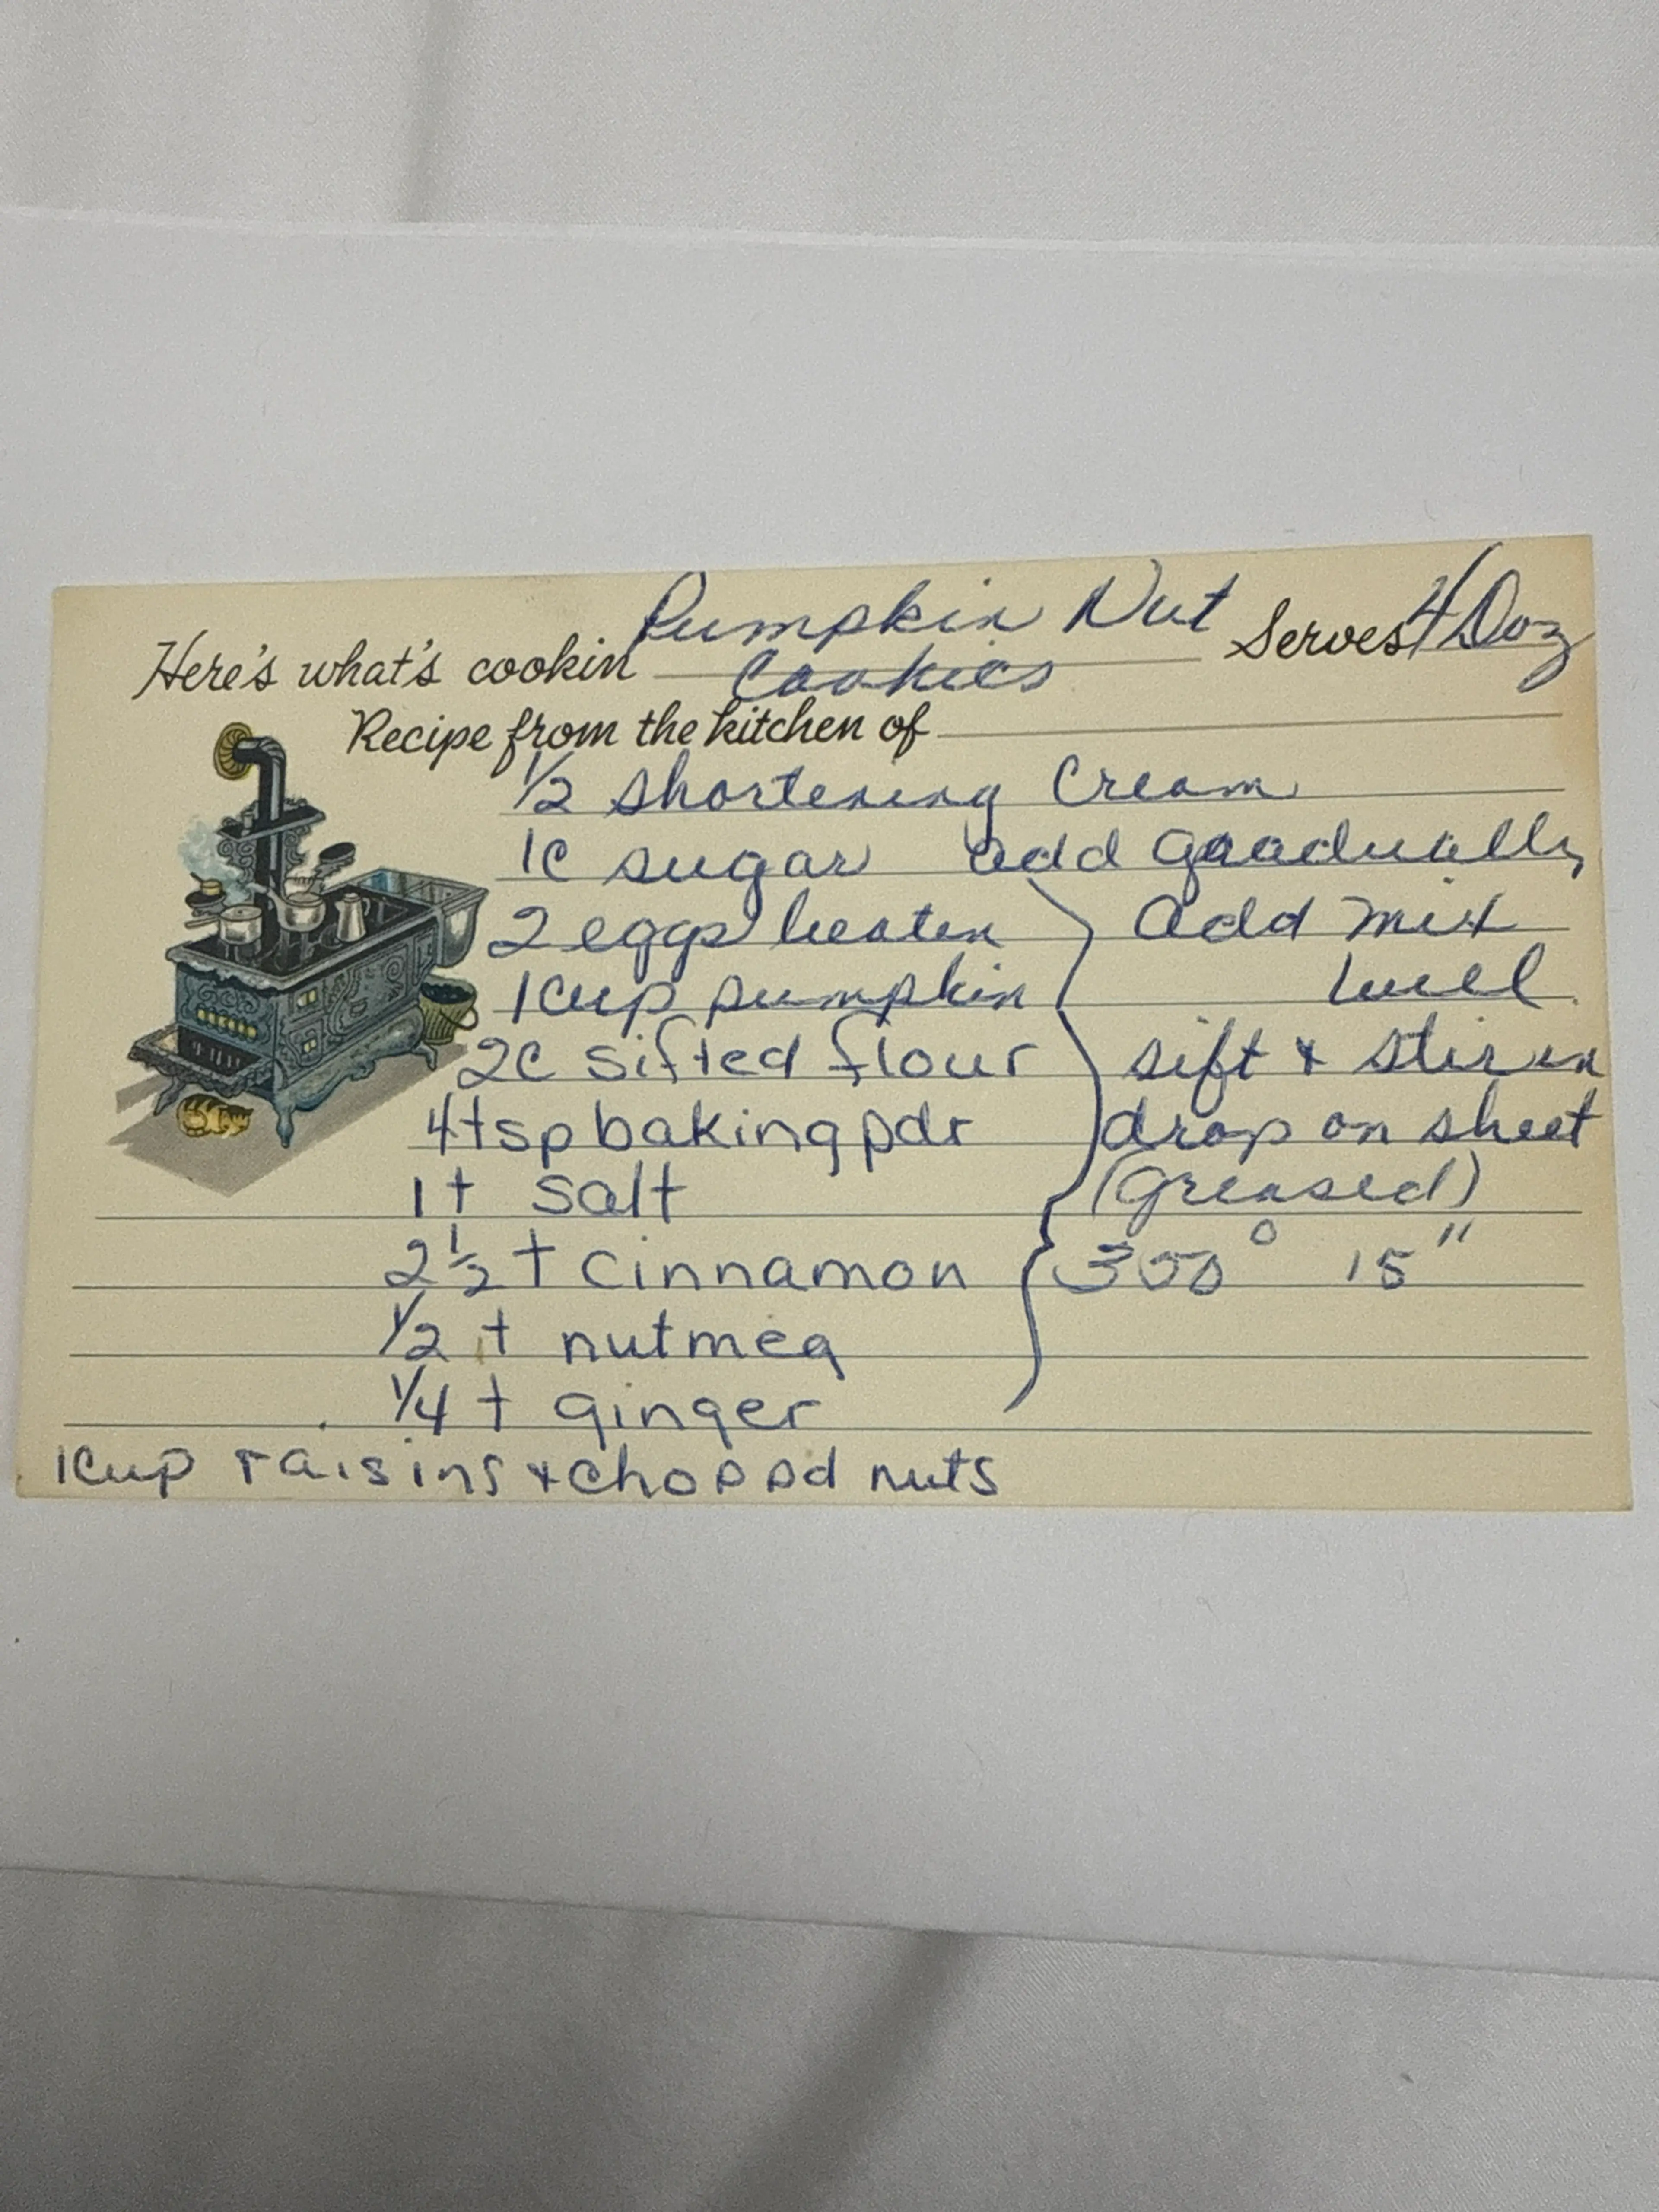 Pumpkin Nut
Here's what's cookin Cookies Serves 4 Doz
Recipe from the kitchen of
1/2 shortening Cream
1c sugar add graadually
2 eggs beaten add mix
1 cup pumpkin well
2c sifted flour sift & stir in
4 tsp baking pdr drop on sheet
1 t salt (greased)
2 1/2 t cinnamon 350° 15"
1/2 t nutmeg
1/4 t ginger
1 cup raisins & choppd nuts